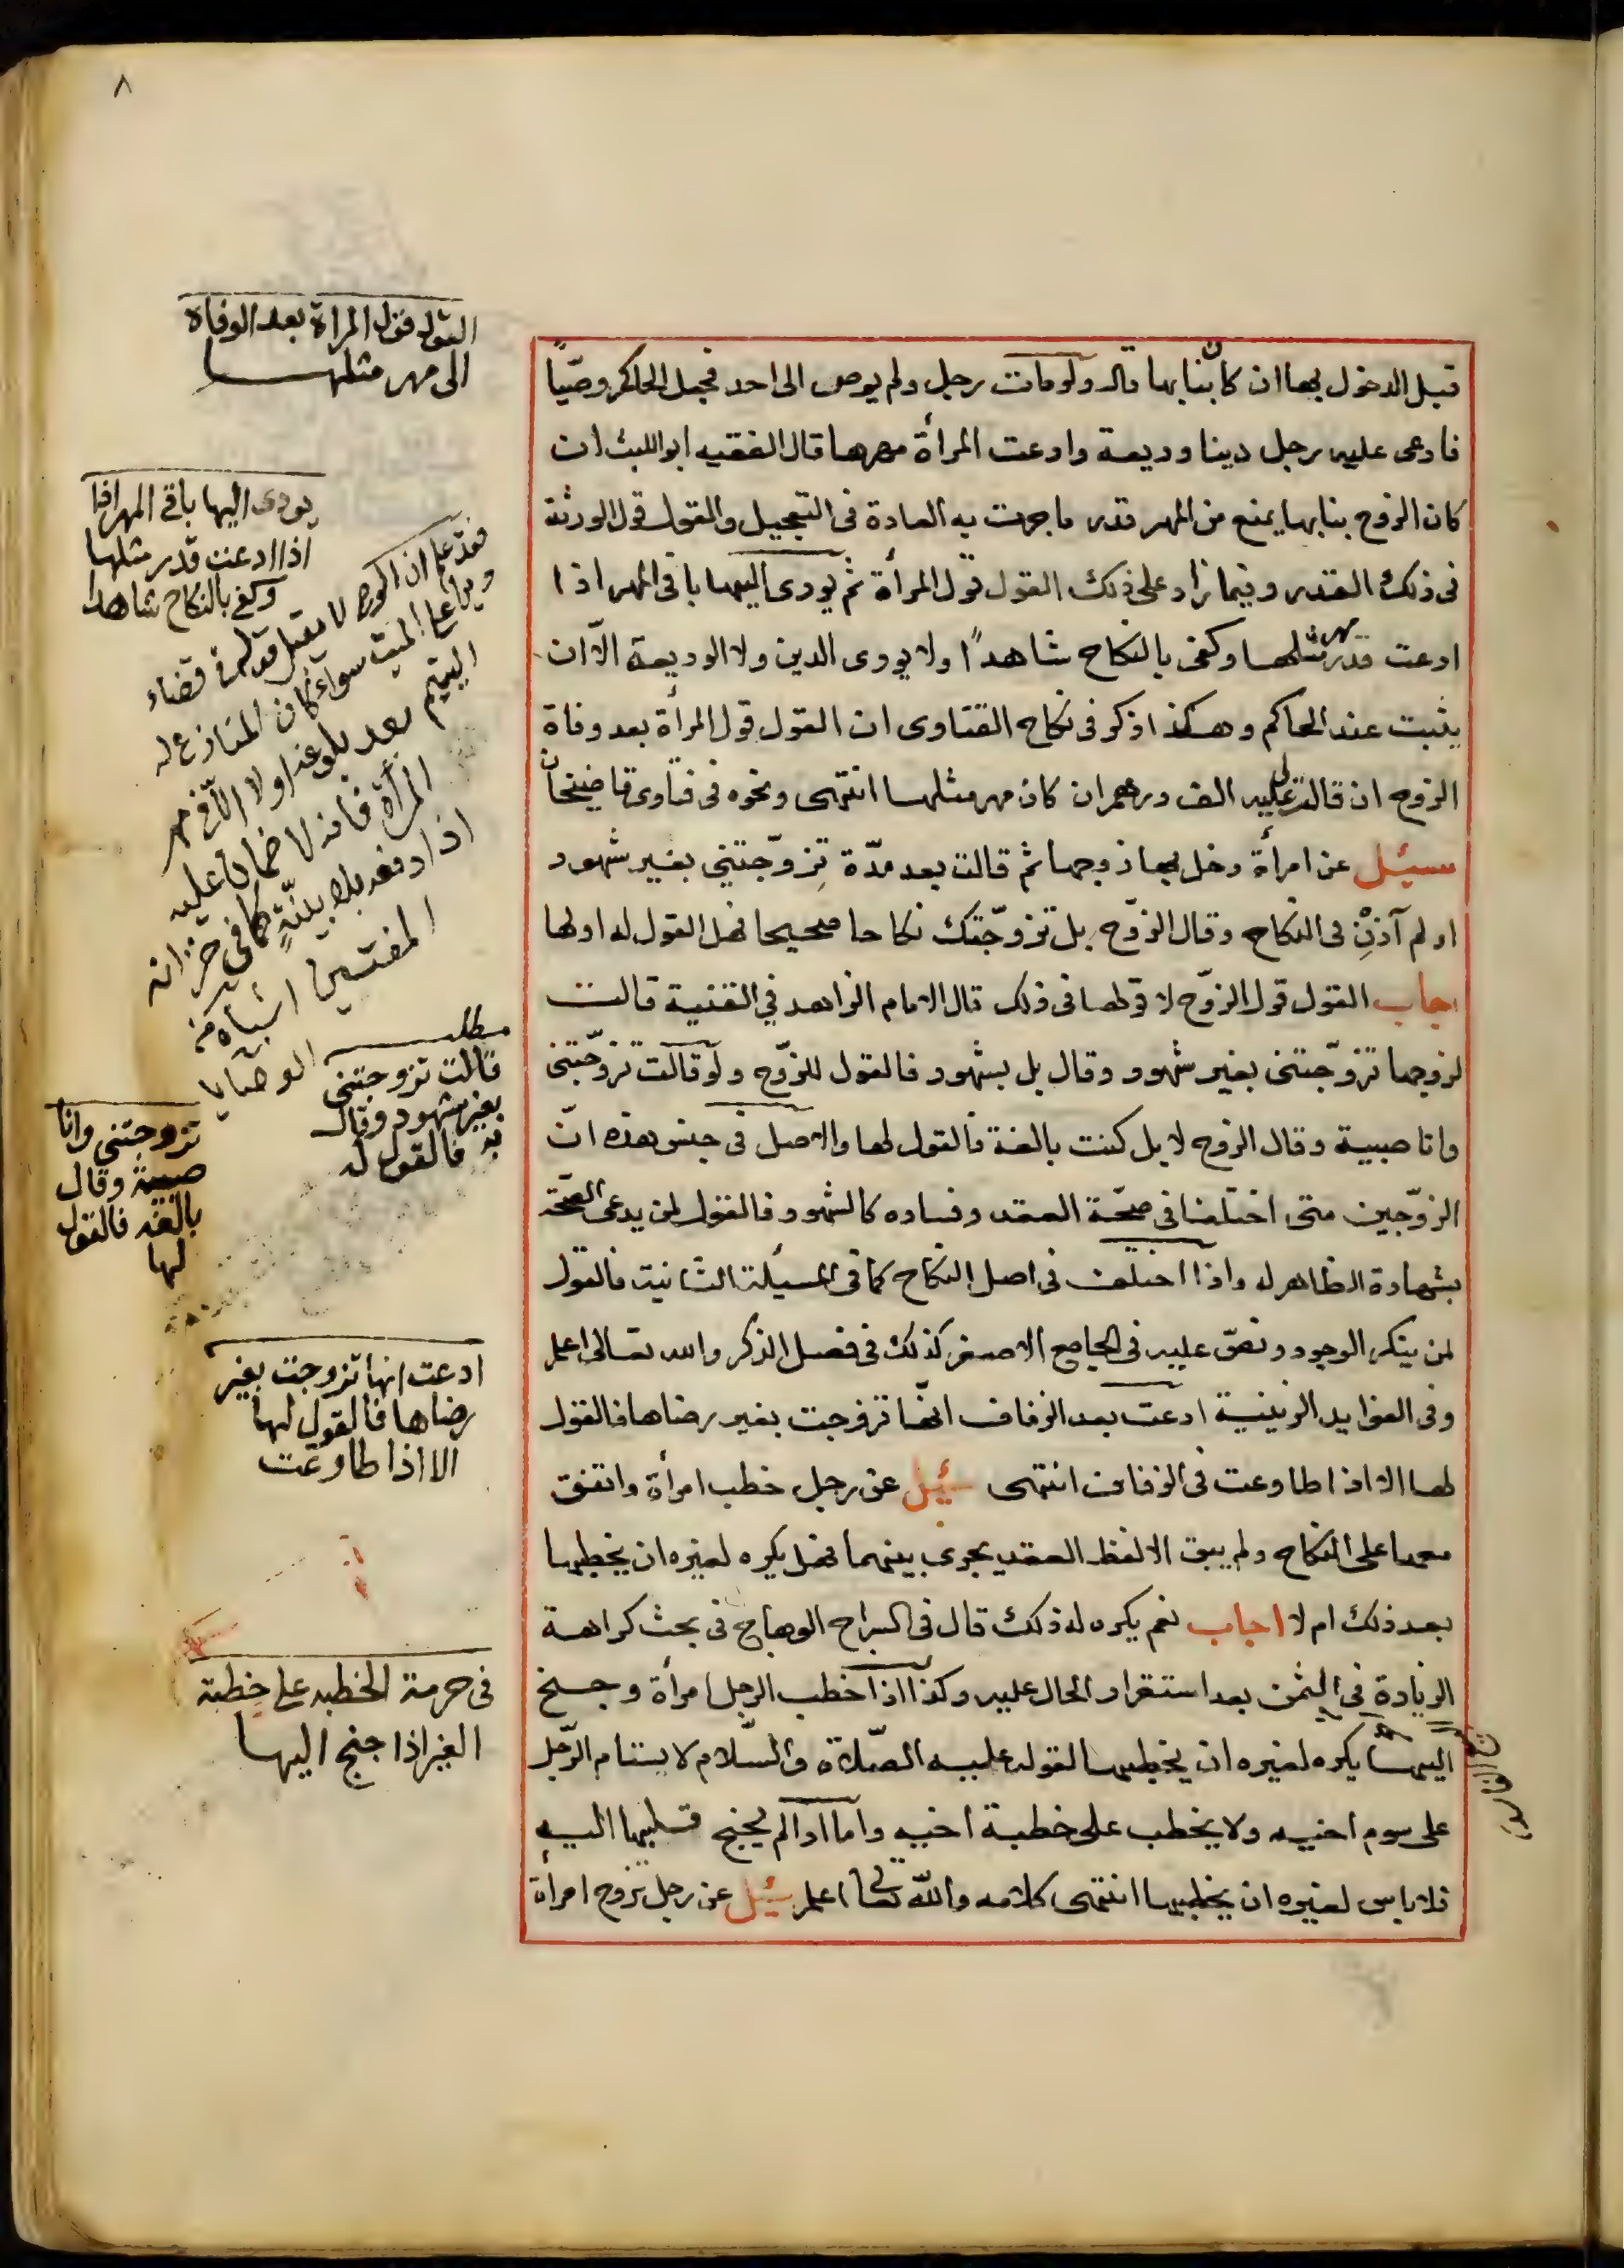 ٨
قبل الدخول بها ان كان بنا بها قال ولو مات رجل ولم يوص الى احد فجعل الحاكم وصيّاً
فادعى عليه رجل دينا وديعة وادعت المرأة مهرها قال الفقيه ابو الليث ان
كان الزوج بنا بها يمنع من المهر قدر ما جرت به العادة فى التعجيل والقول قول الورثة
فى ذلك القدر وفيما زاد على ذلك القول قول المرأة ثم يودى اليها باقى المهر اذا
ادعت قدر مهر مثلها وكفى بالنكاح شاهداً ولا يودى الدين ولا الوديعة الاّ ان
يثبت عند الحاكم وهكذا ذكر فى نكاح الفتاوى ان القول قول المرأة بعد وفاة
الزوج ان قالت لى عليه الف درهم ان كان مهر مثلها انتهى ونحوه فى فتاوى قاضيخان
سئيل عن امرأة دخل بها زوجها ثم قالت بعد مدّة تزوّجتني بغير شهود
او لم آذن فى النكاح وقال الزوّج بل تزوّجتك نكاحا صحيحا فهل القول له او لها
اجاب القول قول الزوّج لا قولها فى ذلك قال الامام الزاهد في القنية قالت
لزوجها تزوّجتنى بغير شهود وقال بل بشهود فالقول للزوّج ولو قالت تزوّجتنى
وانا صبية وقال الزوج لا بل كنت بالغة فالقول لها والاصل فى جنس هذه انّ
الزوّجين متى اختلفا فى صحّة العقد وفساده كالشهود فالقول لمن يدعى الصحّة
بشهادة الظاهر له واذا اختلف فى اصل النكاح كما فى المسيلة الثانية فالقول
لمن ينكر الوجود ونصّ عليه فى الجامع الاصغر كذلك فى فصل الذكر والله تعالى اعلم
وفى الفوايد الزينية ادعت بعد الزفاف انها تزوجت بغير رضاها فالقول
لها الا اذا طاوعت فى الزفاف انتهى سئيل عن رجل خطب امرأة واتفق
معها على النكاح ولم يبق الا لفظ العقد يجرى بينهما فهل يكره لغيره ان يخطبها
بعد ذلك ام لا اجاب نعم يكره له ذلك قال فى السراج الوهاج فى بحث كراهة
الزيادة فى الثمن بعد استقرار الحال عليه وكذا اذا خطب الرجل امرأة وجنح
اليها يكره لغيره ان يخطبها لقوله عليه الصّلاة والسّلام لا يستام الرّجل
على سوم اخيه ولا يخطب على خطبة اخيه واما اذا لم يجنح قلبها اليه
فلا باس لغيره ان يخطبها انتهى كلامه والله تعالى اعلم سئيل عن رجل تزوج امرأة
القول قول المراة بعد الوفاة
الى مهر مثلها
يودى اليها باقى المهر
اذا ادعت قدر مثلها
وكفى بالنكاح شاهدا
اليتيم بعد بلوغه اولا الاّ فى مهر
المرأة فانه لا ضمان عليه
اذا دفعه بلا بينّةٍ كما فى خزانة
المفتيين اشباه من
الوصايا
مطلب
قالت تزوجتنى
بغير شهود وقال
به فالقول له
تزوجتنى وانا
صبية وقال
بالغه فالقول
لها
ادعت انها تزوجت بغير
رضاها فالقول لها
الا اذا طاوعت
فى حرمة الخطبه على خطبة
الغير اذا جنح اليها